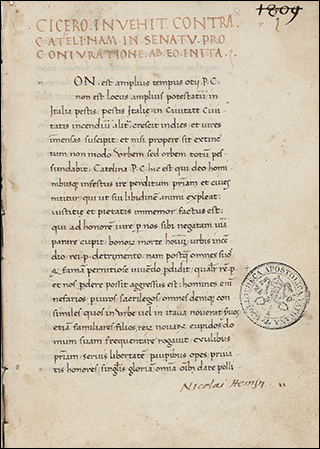 1809
CICERO. INVEHIT. CONTRA.
CATELINAM. IN. SENATV. PRO
CONIVRATIONE. AB. EO. INITA.
ON est amplius tempus otij. P. C.
non est locus amplius potestati in
Italia pestis. pestis Italiæ in Civitate Civi
tatis incendiū alit. crescit indies et vires
imensas suscipit. et nisi propere sit extinc
tum non modo Vrbem sed orbem totum pes
sundabit. Catelina P. C. hic est qui deo homi
nibusque infestus ire perditum patriam et cives
nititur. qui ut sui libidinem animi expleat.
iustitie et pietatis immemor factus est.
qui ad honorem iure p nos sibi negatam viā
parare cupit. honoris morte hominum. urbis incen
dio. rei p detrimento. nam postquam omnes suos
fama pernitiose vivendo pdidit.
et non posse aggressus est. homines
nefarios. puros sacrilegos omnes denique con
similes quos in Vrbe vel in italia noverat suos
etiam familiares filios. rei novarum cupidos do
mum suam frequentare rogavit. exulibus
patriam. servis libertatem pauperibus opes. priva
tis honores. singulis gloriam. omnia omnibus dare polli
BIBLIOTHECA APOSTOLICA VATICANA
Nicolai